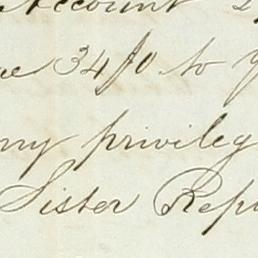 Account
34/0 to
my privileg
Sister Repu